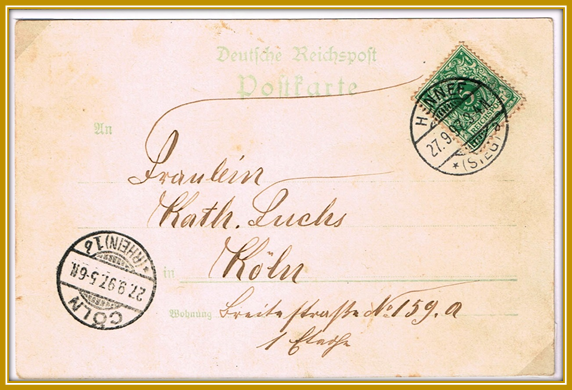 Deutsche Reichspost
Postkarte
An
HENNEF
27.9.97
*(SIEG)
5
REICHSPOST
Fraulein
Kath. Fuchs
in Köln
Wohnung Breitestraße No 159.a
1 Etage
CÖLN
27.9.97.5-6N.
*(RHEIN)1